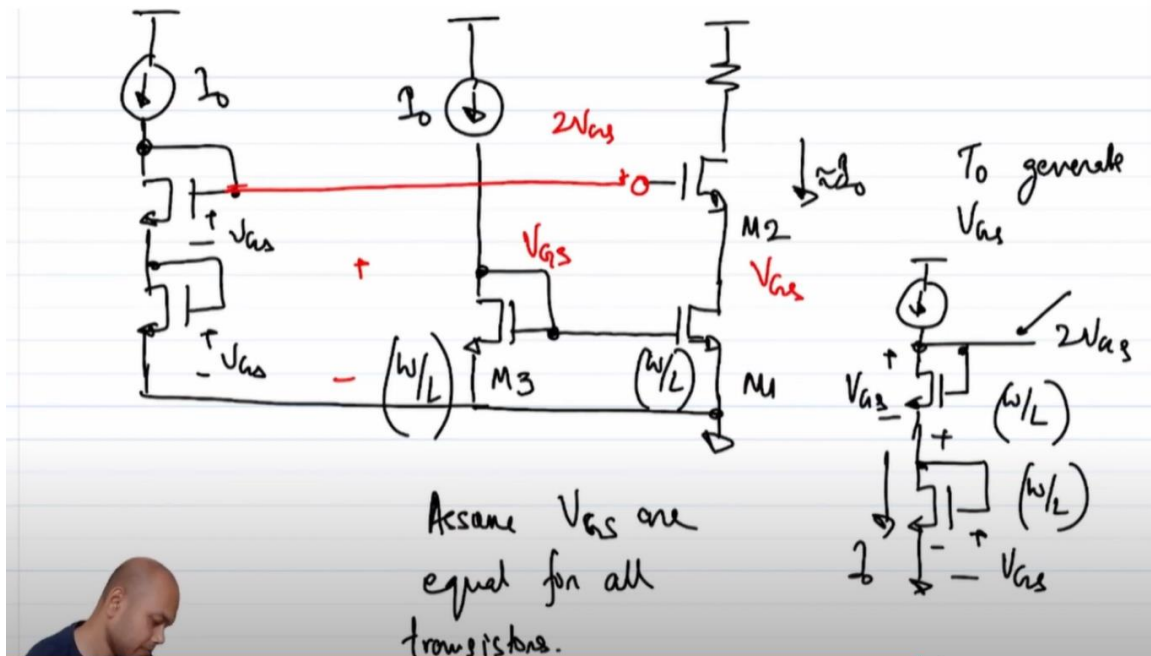 I₀
I₀
2V_GS
+
≈I₀
To generate
V_GS
+
−
V_GS
+
V_GS
M2
V_GS
2V_GS
+
−
V_GS
−
(W/L)
M3
(W/L)
M1
+
V_GS
−
(W/L)
+
(W/L)
−
+
I₀
− V_GS
Assume V_GS are
equal for all
transistors.